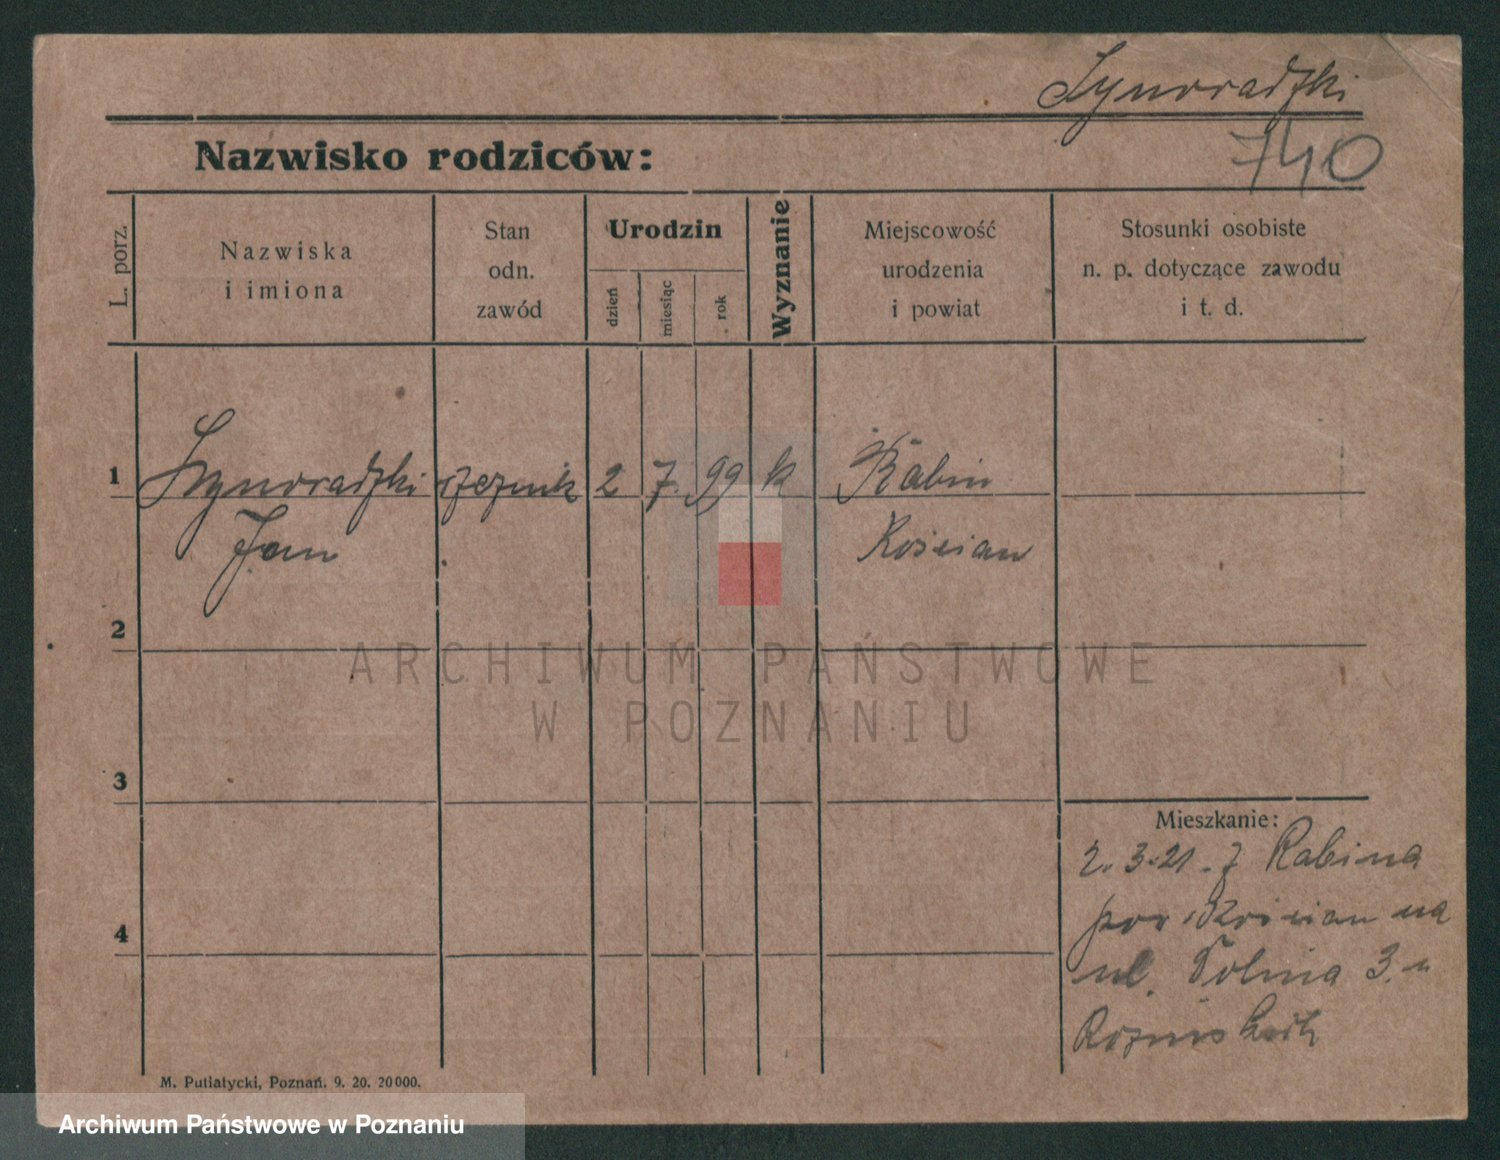 Synoradzki
740
Nazwisko rodziców:
L. porz.
Nazwiska
i imiona
Stan
odn.
zawód
Urodzin
dzień
miesiąc
rok
Wyznanie
Miejscowość
urodzenia
i powiat
Stosunki osobiste
n. p. dotyczące zawodu
i t. d.
1 Synoradzki rzeznik 2 7. 99 k Rąbin
Jan Kościan
2
ARCHIWUM PAŃSTWOWE
W POZNANIU
3
4
Mieszkanie:
2. 3. 21. z Rąbina
pow Kościan na
ul. Polna 3. u
M. Putiatycki, Poznań. 9. 20. 20000.
Archiwum Państwowe w Poznaniu